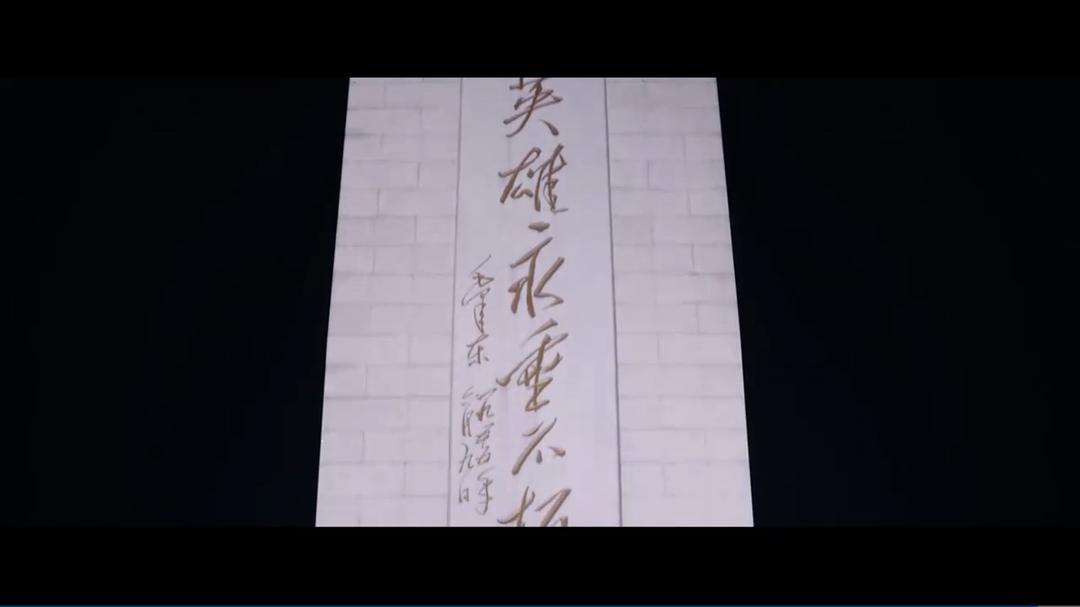 英雄永垂不朽
毛泽东 一九五五年
六月九日